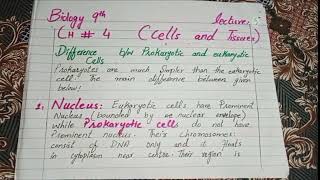 Biology 9th lecture: 5
CH # 4 (Cells and Tissues)
Difference b/w Prokaryotic and eukaryotic
Cells
Prokaryotes are much Simpler than the eukaryotic
cells. The main difference between given
below:
1. Nucleus: Eukaryotic cells have Prominent
Nucleus (bounded by nuclear envelope)
while Prokaryotic cells do not have
Prominent nucleus. Their chromosomes
consist of DNA only and it floats
in cytoplasm near centre. Their region is